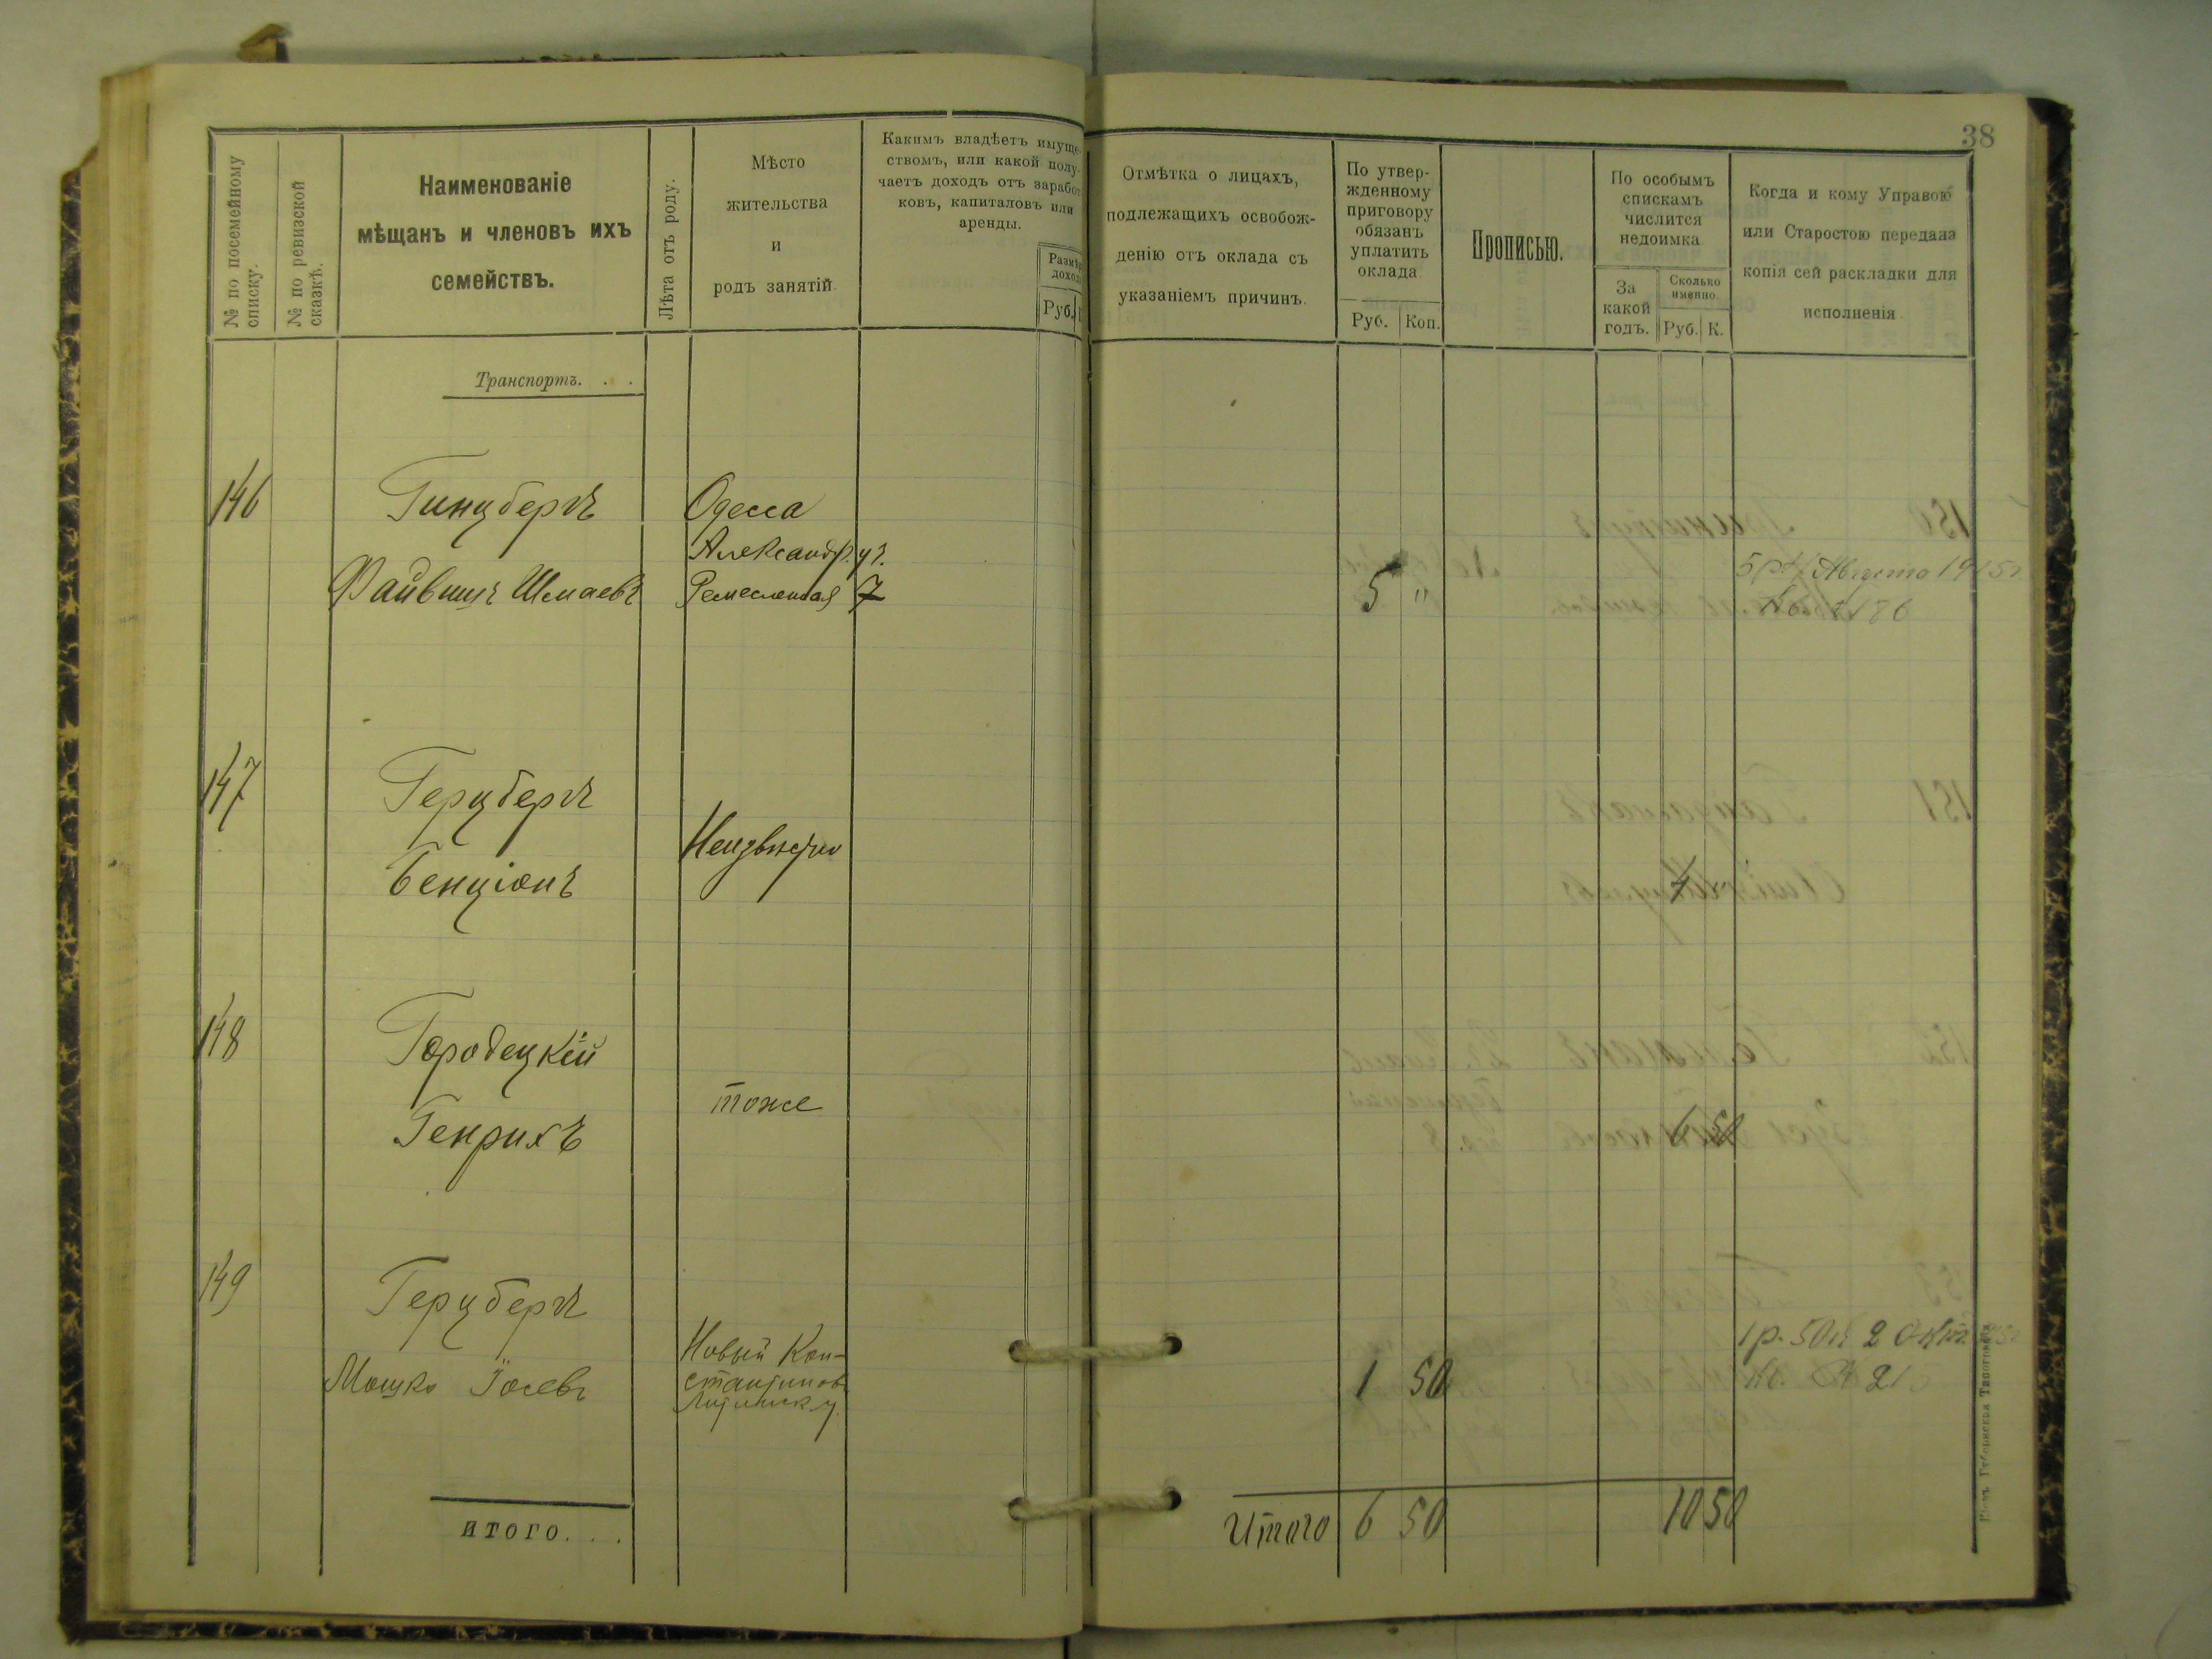 38
№ по посемейному
списку.
№ по ревизской
сказкѣ.
Наименованіе
мѣщанъ и членовъ ихъ
семействъ.
Лѣта отъ роду.
Мѣсто
жительства
и
родъ занятій.
Какимъ владѣетъ имуще-
ствомъ, или какой полу-
чаетъ доходъ отъ заработ-
ковъ, капиталовъ или
аренды.
Руб.
Отмѣтка о лицахъ,
подлежащихъ освобож-
денію отъ оклада съ
указаніемъ причинъ.
По утвер-
жденному
приговору
обязанъ
уплатить
оклада.
Руб.
Коп.
Прописью.
По особымъ
спискамъ
числится
недоимка.
За
какой
годъ.
Сколько
именно.
Руб.
К.
Когда и кому Управою
или Старостою передана
копія сей раскладки для
исполненія.
Транспортъ. . .
146
Гинцбергъ
Файвишъ Шмаевъ
Одесса
Александр. уч.
Ремесленная 7
5 "
Августа
186
147
Герцбергъ
Бенціонъ
Неизвѣстно
4
148
Городецкій
Генрихъ
тоже
6 50
149
Герцбергъ
Мошко Іосевъ
Новый Кон-
стантиновъ
Литинск у.
1 50
1 р. 50 к 2 Окт
итого. . .
Итого 6 50
10 50